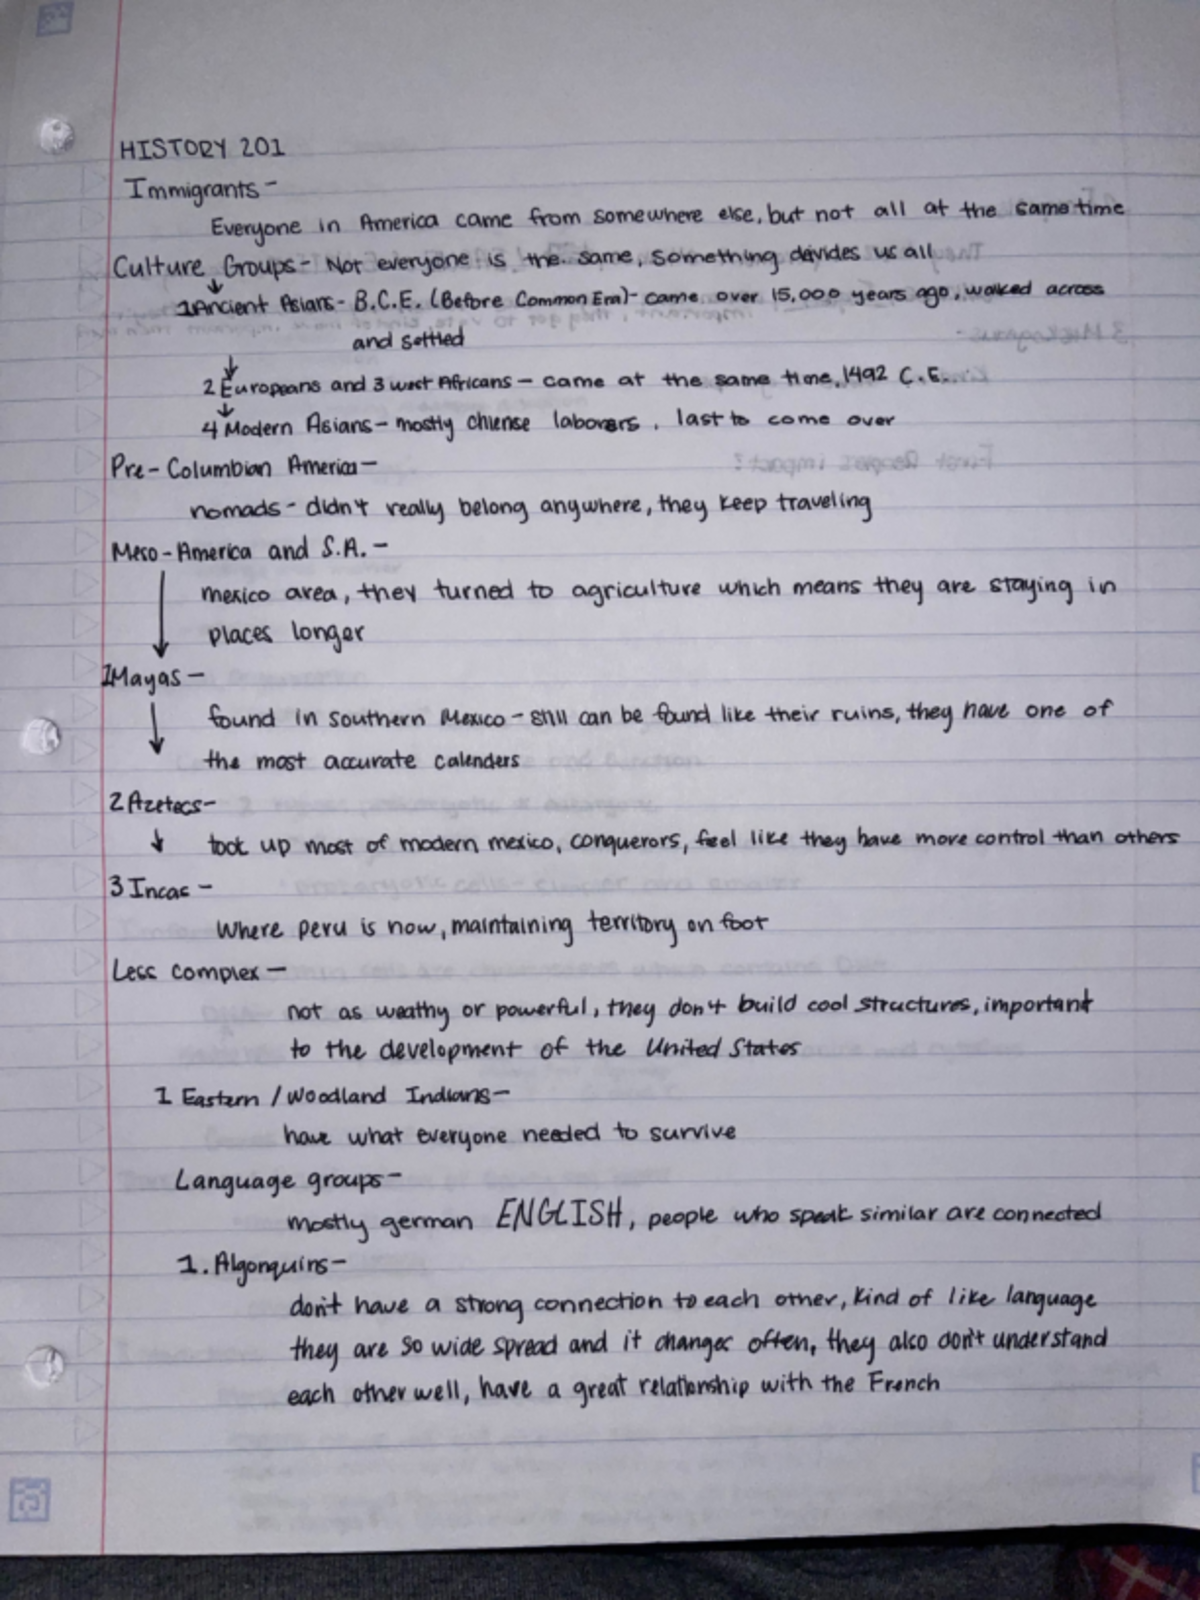 HISTORY 201
Immigrants-
Everyone in America came from somewhere else, but not all at the same time
Culture Groups- Not everyone is the same, something devides us all
1Ancient Asians- B.C.E. (Before Common Era)- came over 15,000 years ago, walked across
and settled
2 Europeans and 3 west Africans - came at the same time, 1492 C.E.
4 Modern Asians- mostly chiense laborers, last to come over
Pre-Columbian America-
nomads- didn't really belong anywhere, they keep traveling
Meso-America and S.A. -
mexico area, they turned to agriculture which means they are staying in
places longer
1Mayas -
found in southern Mexico - still can be found like their ruins, they have one of
the most accurate calenders
2 Azetecs-
took up most of modern mexico, conquerors, feel like they have more control than others
3 Incas -
Where peru is now, maintaining territory on foot
Less complex -
not as weathy or powerful, they don't build cool structures, important
to the development of the United States
1 Eastern / Woodland Indians-
have what everyone needed to survive
Language groups-
mostly german ENGLISH, people who speak similar are connected
1. Algonquins-
don't have a strong connection to each other, kind of like language
they are so wide spread and it changes often, they also don't understand
each other well, have a great relationship with the French